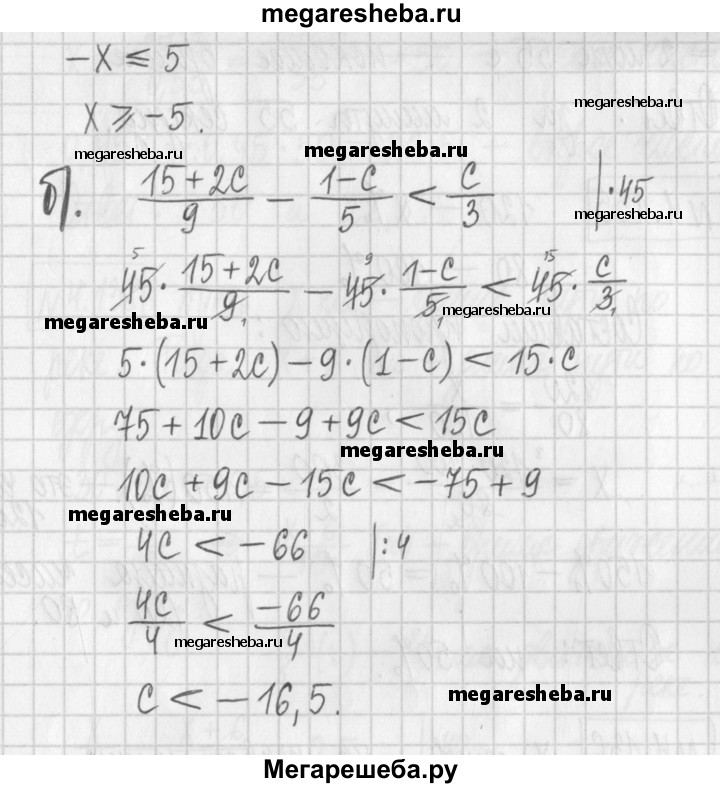 megaresheba.ru
-x ≤ 5
x ≥ -5.
megaresheba.ru
megaresheba.ru
megaresheba.ru
б). (15+2c)/9 - (1-c)/5 < c/3 |·45
5 9 15
45 · (15+2c)/9 - 45 · (1-c)/5 < 45 · c/3
1 1 1
megaresheba.ru
megaresheba.ru
5·(15+2c)-9·(1-c) < 15·c
75+10c-9+9c < 15c
megaresheba.ru
10c+9c-15c < -75+9
megaresheba.ru
4c < -66 |:4
4c/4 < -66/4
megaresheba.ru
megaresheba.ru
c < -16,5.
megaresheba.ru
Мегарешеба.ру